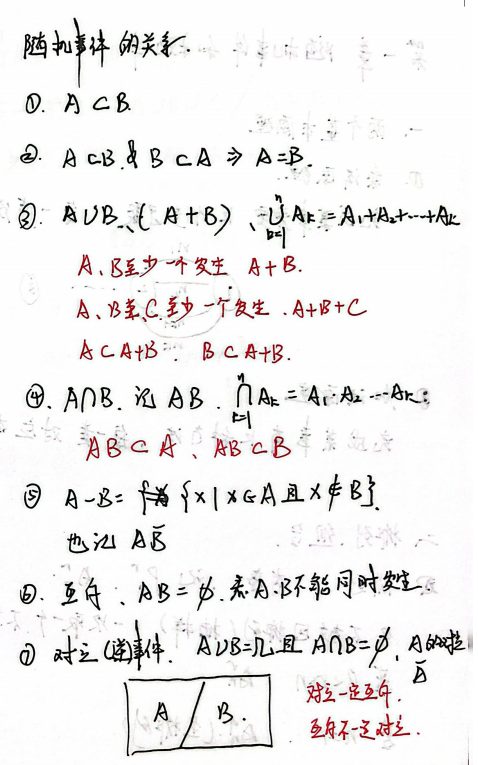 随机事件的关系.
①. A⊂B.
②. A⊂B.且B⊂A ⇒ A=B.
③. A∪B、(A+B)、⋃ₖ₌₁ⁿ Aₖ = A₁+A₂+…+Aₖ
A、B至少一个发生 A+B.
A、B、C至少一个发生. A+B+C
A⊂A+B. B⊂A+B.
④. A∩B. 记 AB. ⋂ₖ₌₁ⁿ Aₖ = A₁·A₂…Aₖ;
AB⊂A、AB⊂B
⑤ A-B= {x|x∈A且x∉B}.
也记 AB̅
⑥. 互斥、AB=∅.表A.B不能同时发生.
⑦ 对立(逆)事件. A∪B=Ω且A∩B=∅. A的对立
A̅
A B.
对立一定互斥.
互斥不一定对立.